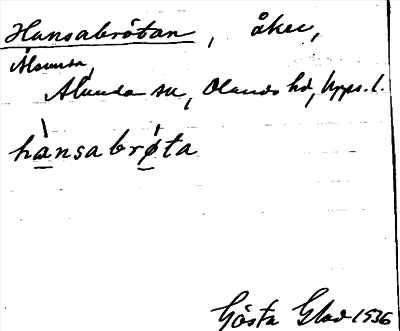 Hansabrötan, åker,
Ålsunda,
Alunda sn, Olands hd, Upps. l.
hànsabrø̀ta
Gösta Glad 1936